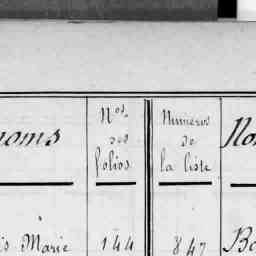 noms
Nos
des
folios
Numéros
de
la liste
No
is Marie
144
847
Bo